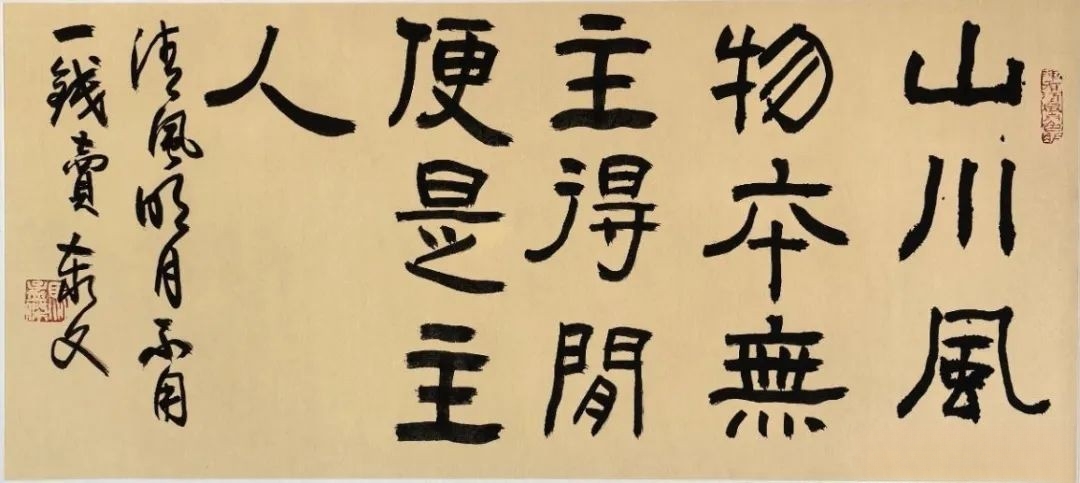 山川風
物本無
主得閒
便是主
人
清風明月不用
一錢賣 泰文